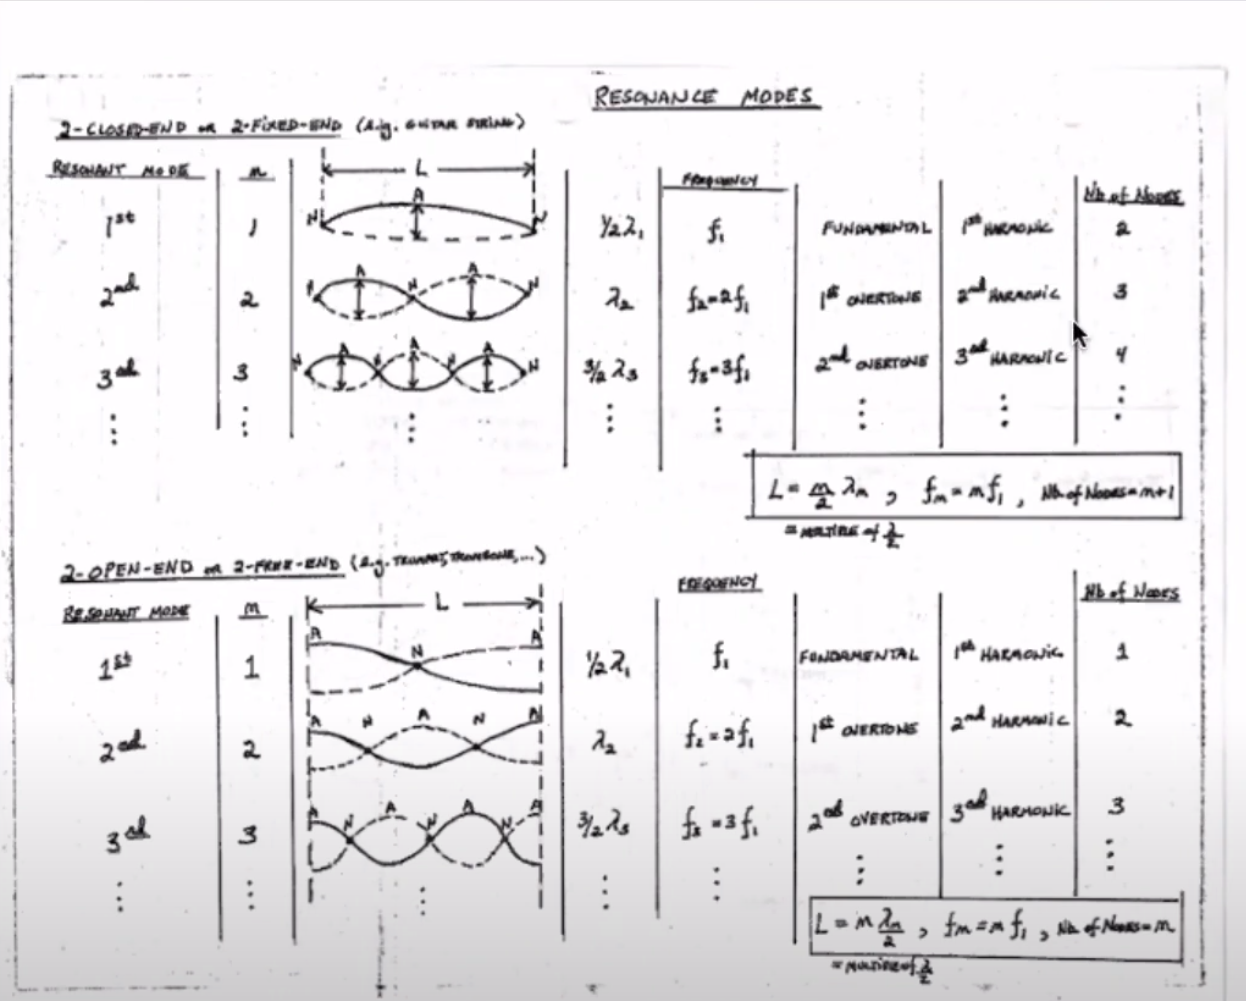 RESONANCE MODES
2-CLOSED-END or 2-FIXED-END (e.g. GUITAR STRING)
RESONANT MODE m L FREQUENCY Nb of NODES
1st 1 N A N 1/2 λ₁ f₁ FUNDAMENTAL 1st HARMONIC 2
2nd 2 A N A N λ₂ f₂=2f₁ 1st OVERTONE 2nd HARMONIC 3
3rd 3 N A N A N A N 3/2 λ₃ f₃=3f₁ 2nd OVERTONE 3rd HARMONIC 4
L = m/2 λm , fm = m f₁ , Nb of NODES = m+1
= MULTIPLE of λ/2
2-OPEN-END or 2-FREE-END (e.g. TRUMPET, TROMBONE, ...)
RESONANT MODE m L FREQUENCY Nb of NODES
1st 1 A N A 1/2 λ₁ f₁ FUNDAMENTAL 1st HARMONIC 1
2nd 2 A N A N A λ₂ f₂ = 2f₁ 1st OVERTONE 2nd HARMONIC 2
3rd 3 A N A N A N A 3/2 λ₃ f₃ = 3f₁ 2nd OVERTONE 3rd HARMONIC 3
L = m λm/2 , fm = m f₁ , Nb of NODES = m
= MULTIPLE of λ/2